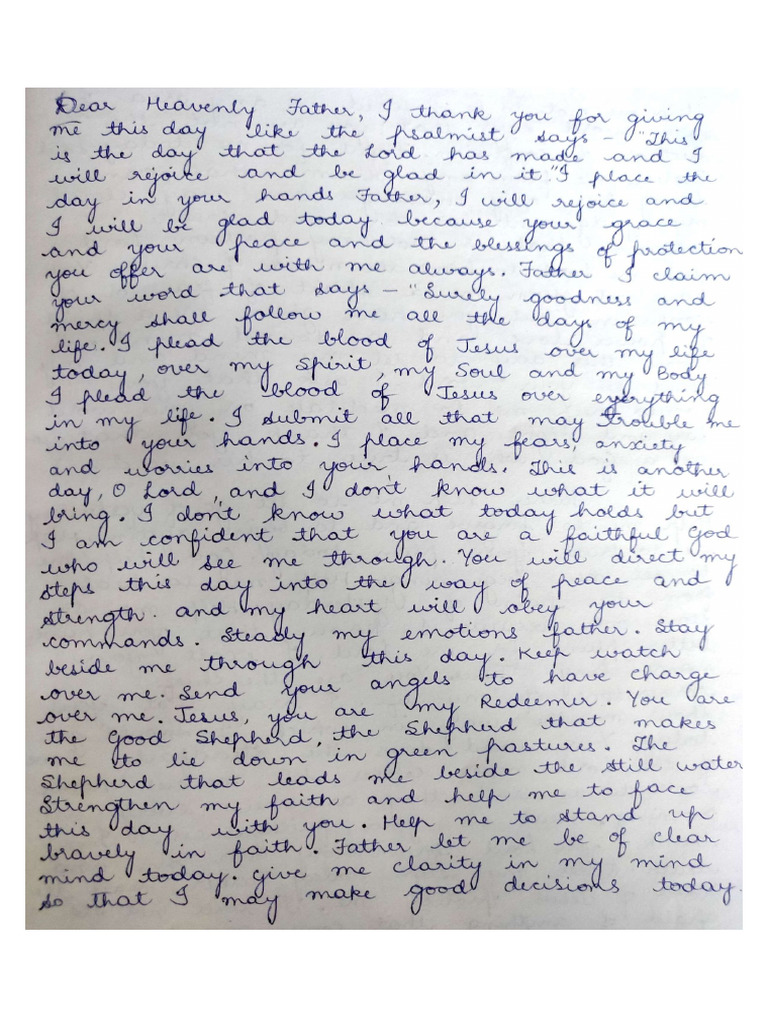 Dear Heavenly Father, I thank you for giving
me this day like the psalmist says - "This
is the day that the Lord has made and I
will rejoice and be glad in it." I place the
day in your hands Father, I will rejoice and
I will be glad today because your grace
and your peace and the blessings of protection
you offer are with me always. Father I claim
your word that says - "Surely goodness and
mercy shall follow me all the days of my
life. I plead the blood of Jesus over my life
today, over my Spirit, my Soul and my Body
I plead the blood of Jesus over everything
in my life. I submit all that may trouble me
into your hands. I place my fears, anxiety
and worries into your hands. This is another
day, O Lord, and I don't know what it will
bring. I don't know what today holds but
I am confident that you are a faithful God
who will see me through. You will direct my
steps this day into the way of peace and
strength. and my heart will obey your
commands. Steady my emotions father. Stay
beside me through this day. Keep watch
over me. Send your angels to have charge
over me. Jesus, you are my Redeemer. You are
the Good Shepherd, the Shepherd that makes
me to lie down in green pastures. The
Shepherd that leads me beside the still water
Strengthen my faith and help me to face
this day with you. Help me to stand up
bravely in faith. Father let me be of clear
mind today. Give me clarity in my mind
so that I may make good decisions today.